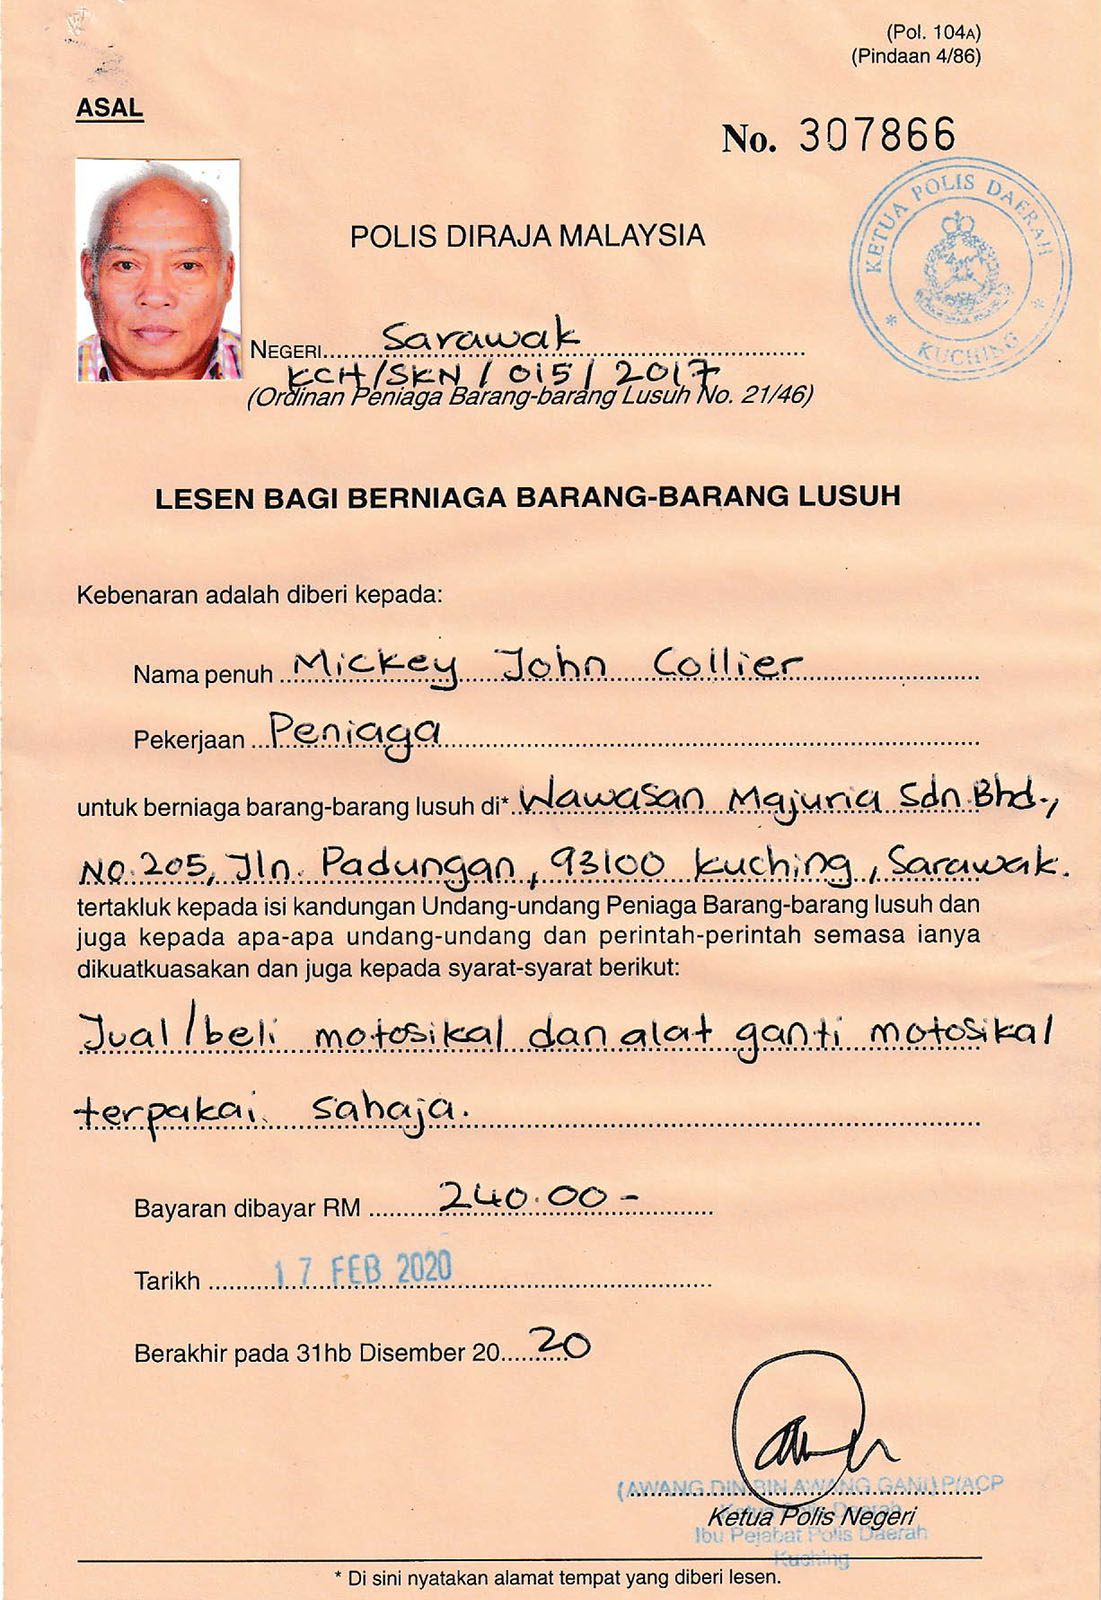 (Pol. 104A)
(Pindaan 4/86)
ASAL
No. 307866
KETUA POLIS DAERAH
* KUCHING *
POLIS DIRAJA MALAYSIA
NEGERI Sarawak
KCH/SKN/015/2017
(Ordinan Peniaga Barang-barang Lusuh No. 21/46)
LESEN BAGI BERNIAGA BARANG-BARANG LUSUH
Kebenaran adalah diberi kepada:
Nama penuh Mickey John Collier
Pekerjaan Peniaga
untuk berniaga barang-barang lusuh di* Wawasan Majuria Sdn Bhd.,
No. 205, Jln. Padungan, 93100 Kuching, Sarawak.
tertakluk kepada isi kandungan Undang-undang Peniaga Barang-barang lusuh dan
juga kepada apa-apa undang-undang dan perintah-perintah semasa ianya
dikuatkuasakan dan juga kepada syarat-syarat berikut:
Jual/beli motosikal dan alat ganti motosikal
terpakai sahaja.
Bayaran dibayar RM 240.00-
Tarikh 17 FEB 2020
Berakhir pada 31hb Disember 20 20
(AWANG DIN BIN AWANG GANI) P/ACP
Ketua Polis Daerah
Ketua Polis Negeri
Ibu Pejabat Polis Daerah
Kuching
* Di sini nyatakan alamat tempat yang diberi lesen.